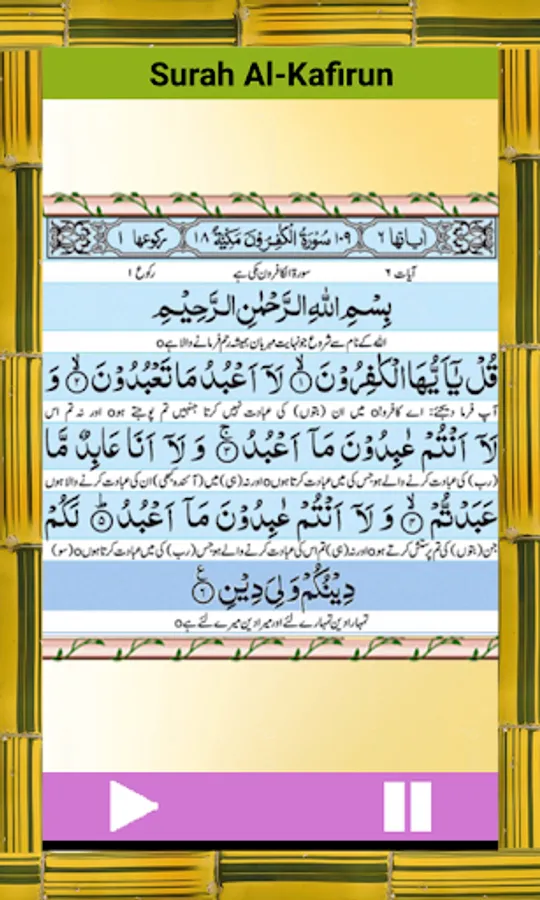 Surah Al-Kafirun
اٰیاتھا ۶ ۱۰۹ سُوۡرَۃُ الۡکٰفِرُوۡنَ مَکِّیَّۃٌ ۱۸ رکوعھا ۱
آیات ۶ سورۃ الکافرون مکی ہے رکوع ۱
بِسۡمِ اللّٰہِ الرَّحۡمٰنِ الرَّحِیۡمِ
اللہ کے نام سے شروع جو نہایت مہربان ہمیشہ رحم فرمانے والا ہے o
قُلۡ یٰۤاَیُّھَا الۡکٰفِرُوۡنَ ۙ﴿۱﴾ لَاۤ اَعۡبُدُ مَا تَعۡبُدُوۡنَ ۙ﴿۲﴾ وَ
آپ فرما دیجئے: اے کافرو! o میں ان (بتوں) کی عبادت نہیں کرتا جنہیں تم پوجتے ہو o اور نہ تم اس
لَاۤ اَنۡتُمۡ عٰبِدُوۡنَ مَاۤ اَعۡبُدُ ۚ﴿۳﴾ وَ لَاۤ اَنَا عَابِدٌ مَّا
(رب) کی عبادت کرنے والے ہو جس کی میں عبادت کرتا ہوں o اور نہ (ہی) میں (آئندہ کبھی) ان کی عبادت کرنے والا ہوں
عَبَدۡتُّمۡ ۙ﴿۴﴾ وَ لَاۤ اَنۡتُمۡ عٰبِدُوۡنَ مَاۤ اَعۡبُدُ ؕ﴿۵﴾ لَکُمۡ
جن (بتوں) کی تم پرستش کرتے ہو o اور نہ (ہی) تم اس کی عبادت کرنے والے ہو جس (رب) کی میں عبادت کرتا ہوں o (سو)
دِیۡنُکُمۡ وَلِیَ دِیۡنِ ﴿۶﴾ ع
تمہارا دین تمہارے لئے اور میرا دین میرے لئے ہے o